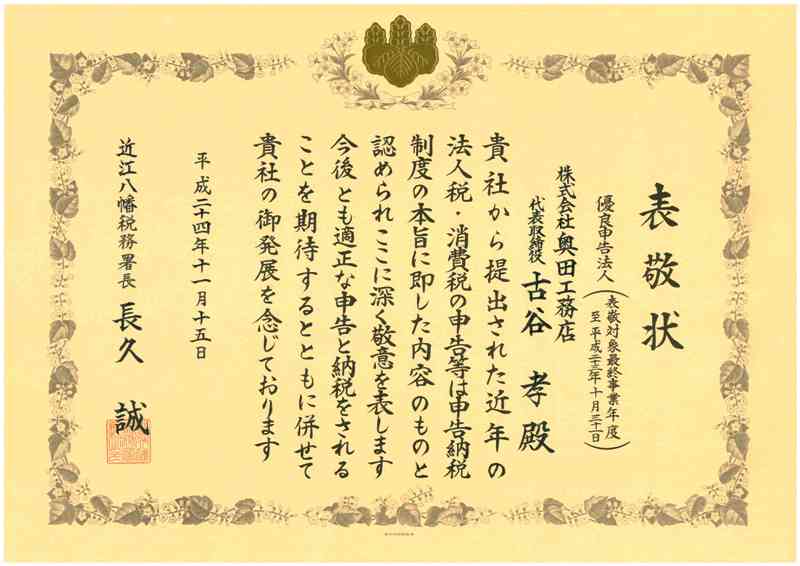 表敬状
優良申告法人
（表敬対象最終事業年度
至平成二十三年十月三十一日）
株式会社奥田工務店
代表取締役 古谷 孝 殿
貴社から提出された近年の
法人税・消費税の申告等は申告納税
制度の本旨に即した内容のものと
認められここに深く敬意を表します
今後とも適正な申告と納税をされる
ことを期待するとともに併せて
貴社の御発展を念じております
平成二十四年十一月十五日
近江八幡税務署長 長久 誠